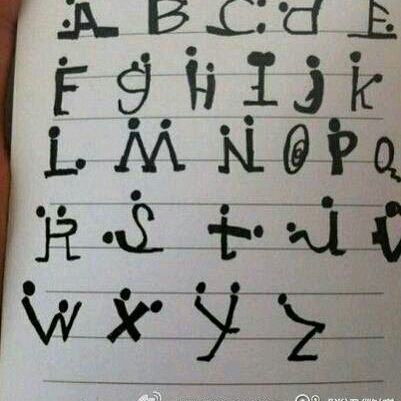 A B C d E
F g H I J K
L M N O P Q
R S t u v
W X Y Z